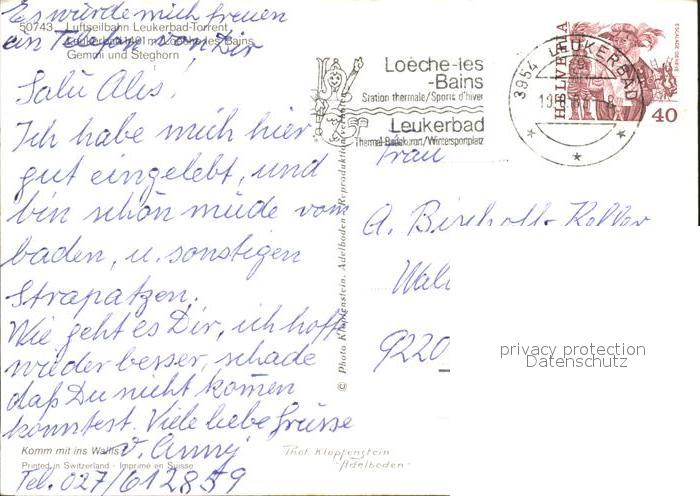 Es würde mich freuen
ein Telefon von Dir
50743 Luftseilbahn Leukerbad-Torrent
Loèche-les Bains
Gemmi und Steghorn
Salü Alis.
Ich habe mich hier
gut eingelebt, und
bin schon müde vom
baden, u. sonstigen
Strapatzen.
Wie geht es Dir, ich hoffe
wieder besser, schade
daß Du nicht komen
konntest. Viele liebe Grüsse
v. Anny
Tel. 027/612859
Komm mit ins Wallis
Printed in Switzerland - Imprimé en Suisse
© Photo Klopfenstein, Adelboden - Reproduktion verboten
Phot. Klopfenstein
Adelboden
Loèche-les
-Bains
Station thermale/Sports d'hiver
Leukerbad
Thermal-Badekurort/Wintersportplatz
3954 LEUKERBAD
HELVETIA
ESCALADE GENEVE
40
Frau
A. Bischoff-Koller
9220
privacy protection
Datenschutz